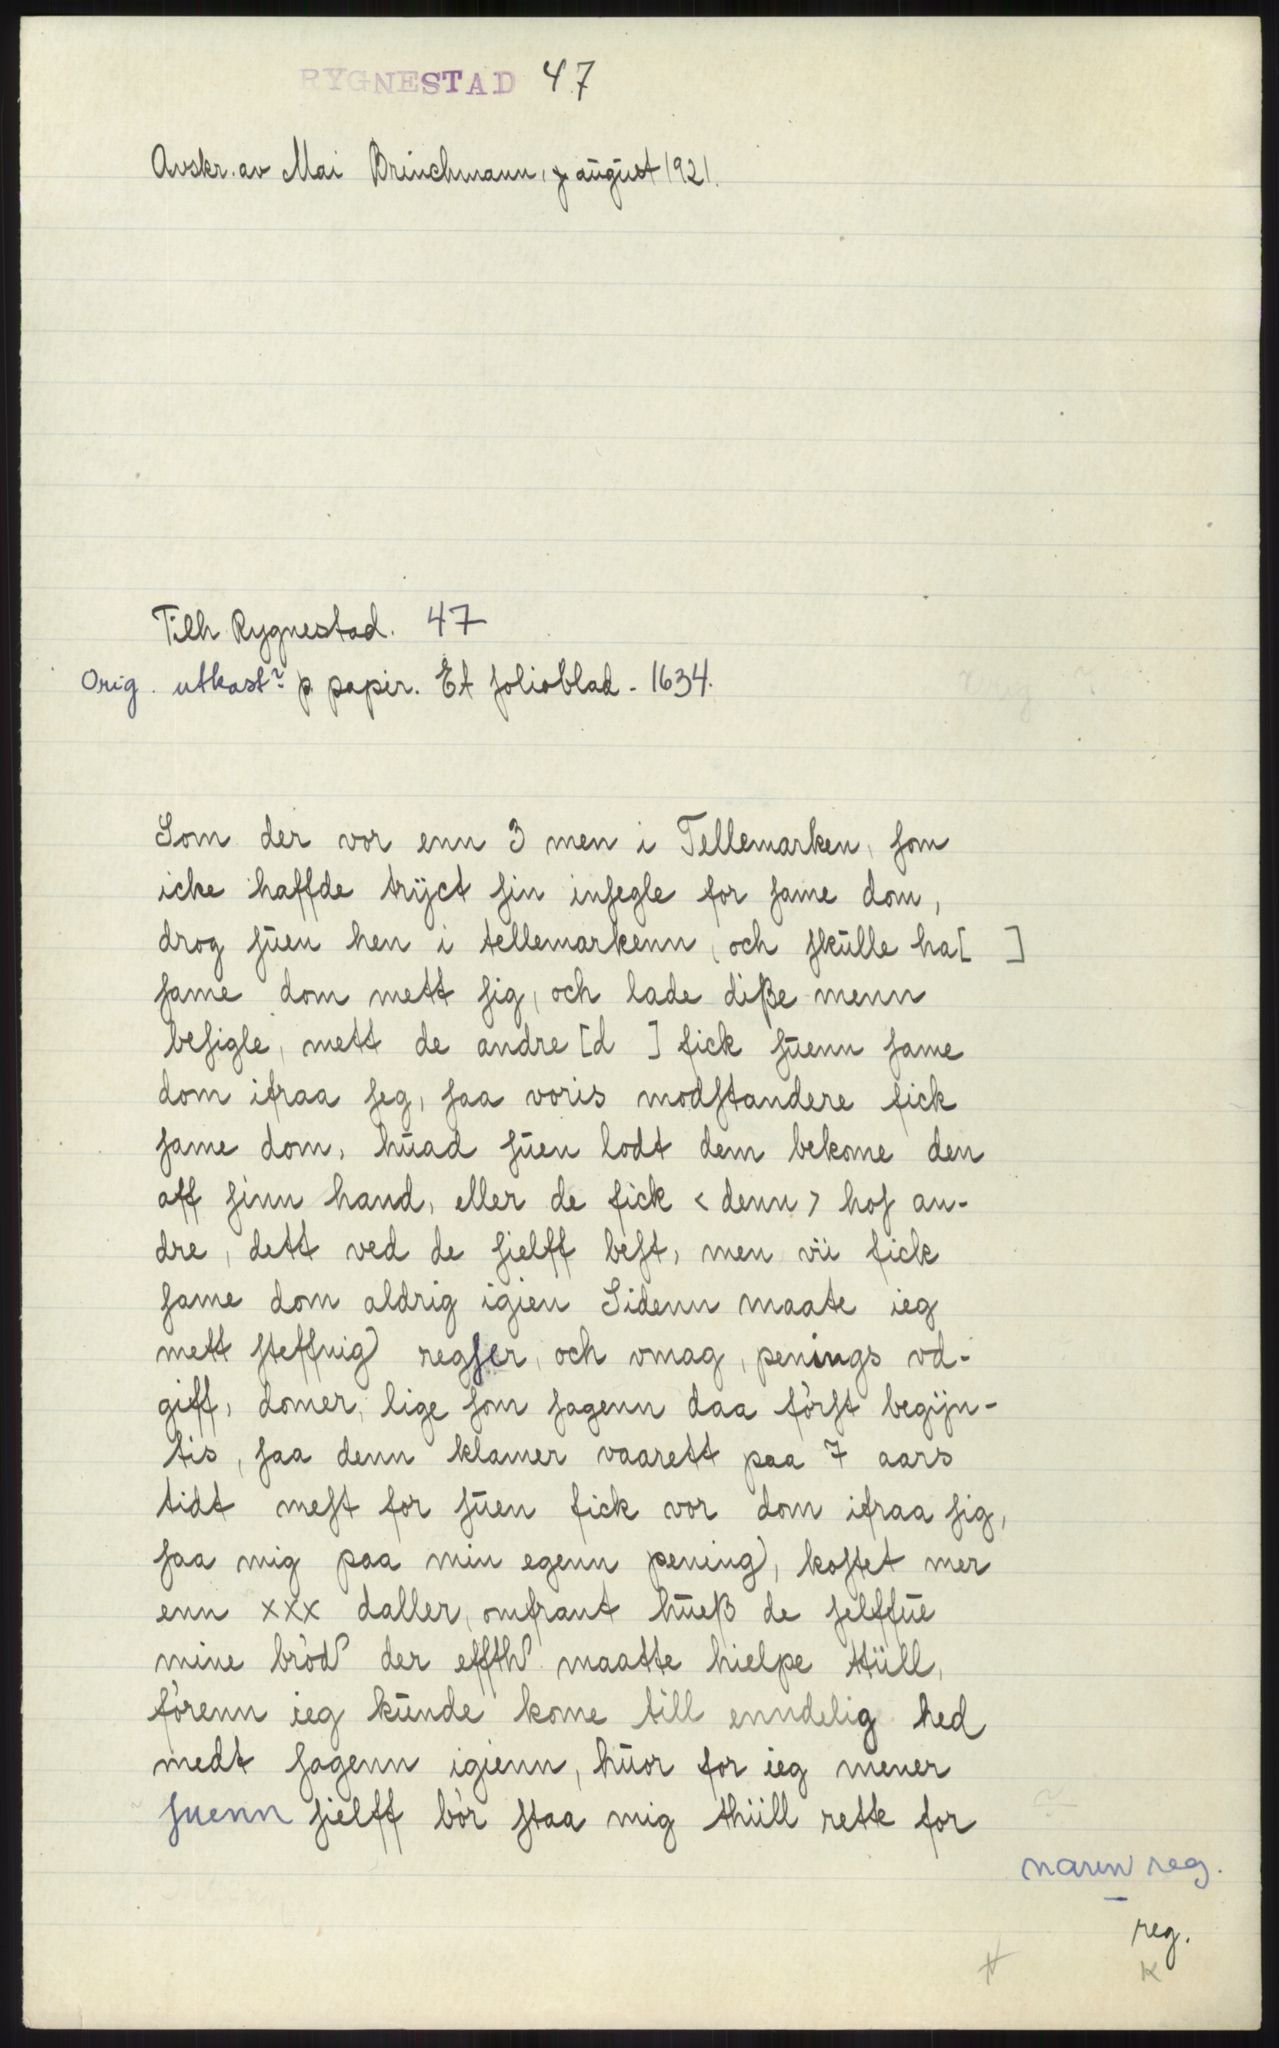 RYGNESTAD 47
Avskr. av Mai Brinchmann, august 1921.
Tilh Rygnestad. 47
Orig. utkast? p papir. Et folioblad - 1634.
Som der vor enn 3 men i Tellemarken, som
icke haffde trÿct sin insegle for same dom,
drog suen hen i tellemarkenn, och skulle ha[ ]
same dom mett sig, och lade diße menn
besigle, mett de andre [d ] fick suenn same
dom ifraa seg, saa voris modstandere fick
same dom, huad suen lodt dem bekome den
aff sinn hand, eller de fick < denn > hos an-
dre, dett ved de sielff best, men vii fick
same dom aldrig igien Sidenn maate ieg
mett steffnig regser, och vmag, penings vd-
giff, domer, lige som sagenn daa først begÿn-
tis, saa denn klamer vaarett paa 7 aars
tidt mest for suen fick vor dom ifraa sig,
saa mig paa min egenn pening, kostet mer
enn xxx daller, omfrant hueß de selffue
mine brød der effth maatte hielpe ttüll,
førenn ieg kunde kome till enndelig hed
medt sagenn igienn, huor for ieg mener
suenn sielff bør staa mig thüll rette for
navn reg.
reg.
K